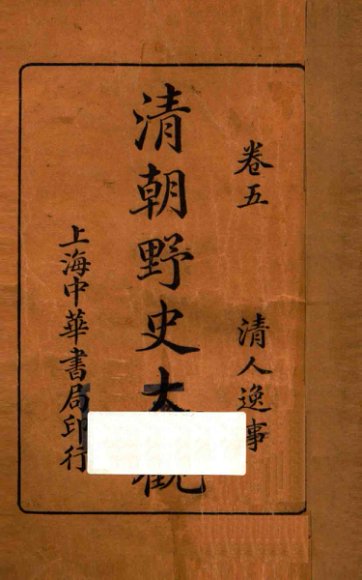 卷五
清人逸事
清朝野史大觀
上海中華書局印行